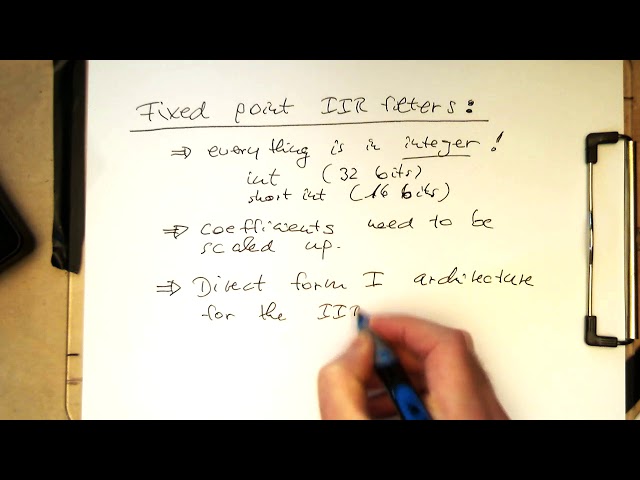 Fixed point IIR filters:
⇒ everything is in integer!
int (32 bits)
short int (16 bits)
⇒ coefficients need to be
scaled up.
⇒ Direct form I architecture
for the IIR